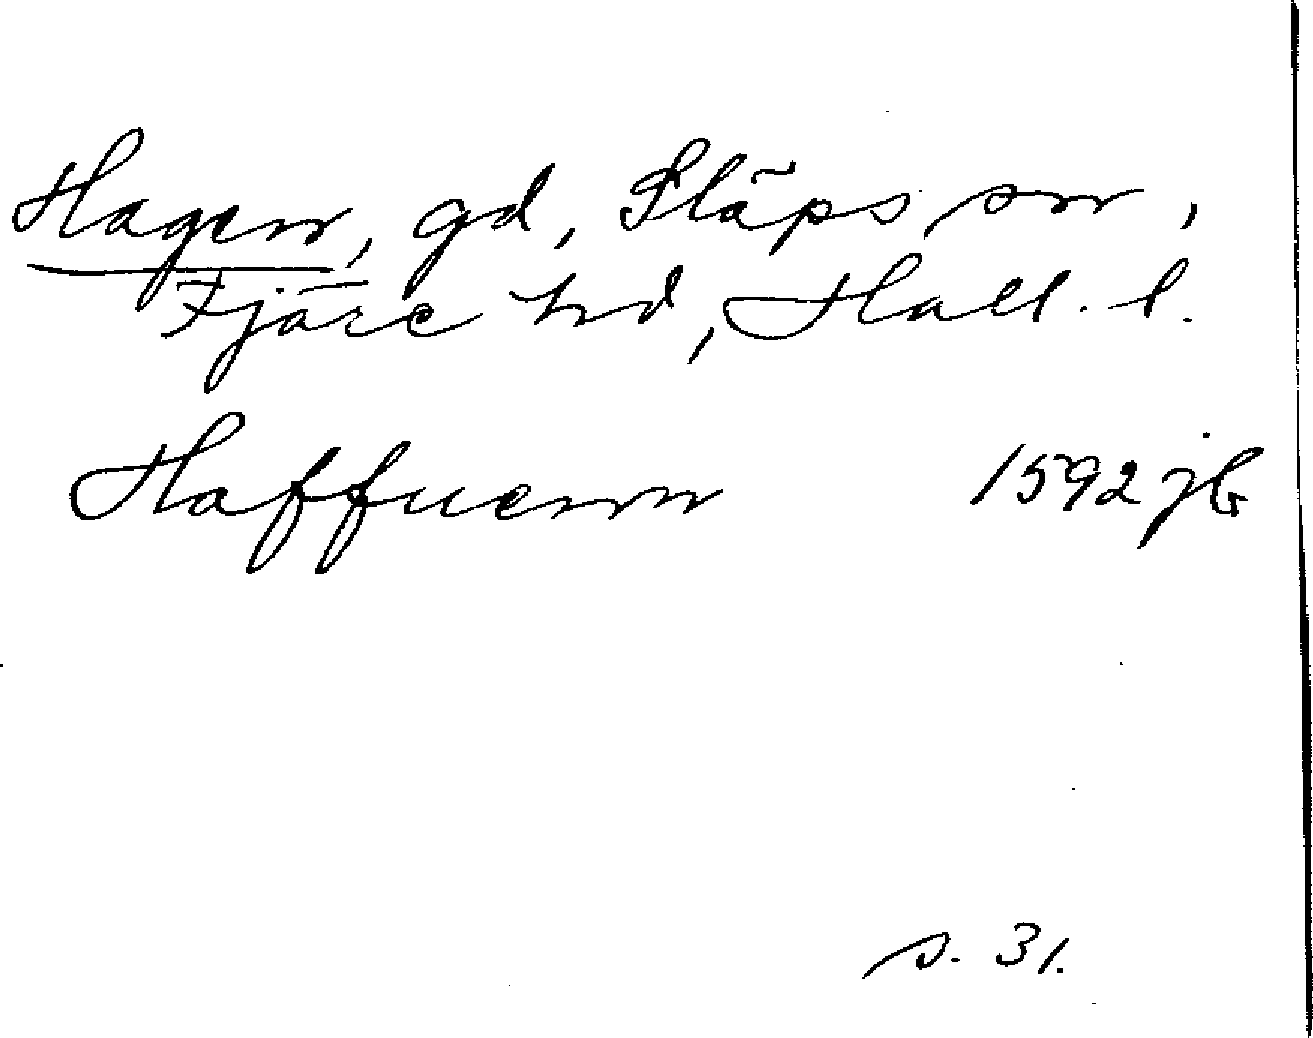 Hagen, gd, Släps sn,
Fjäre hd, Hall. l.
Haffuenn 1592 jb
s. 31.